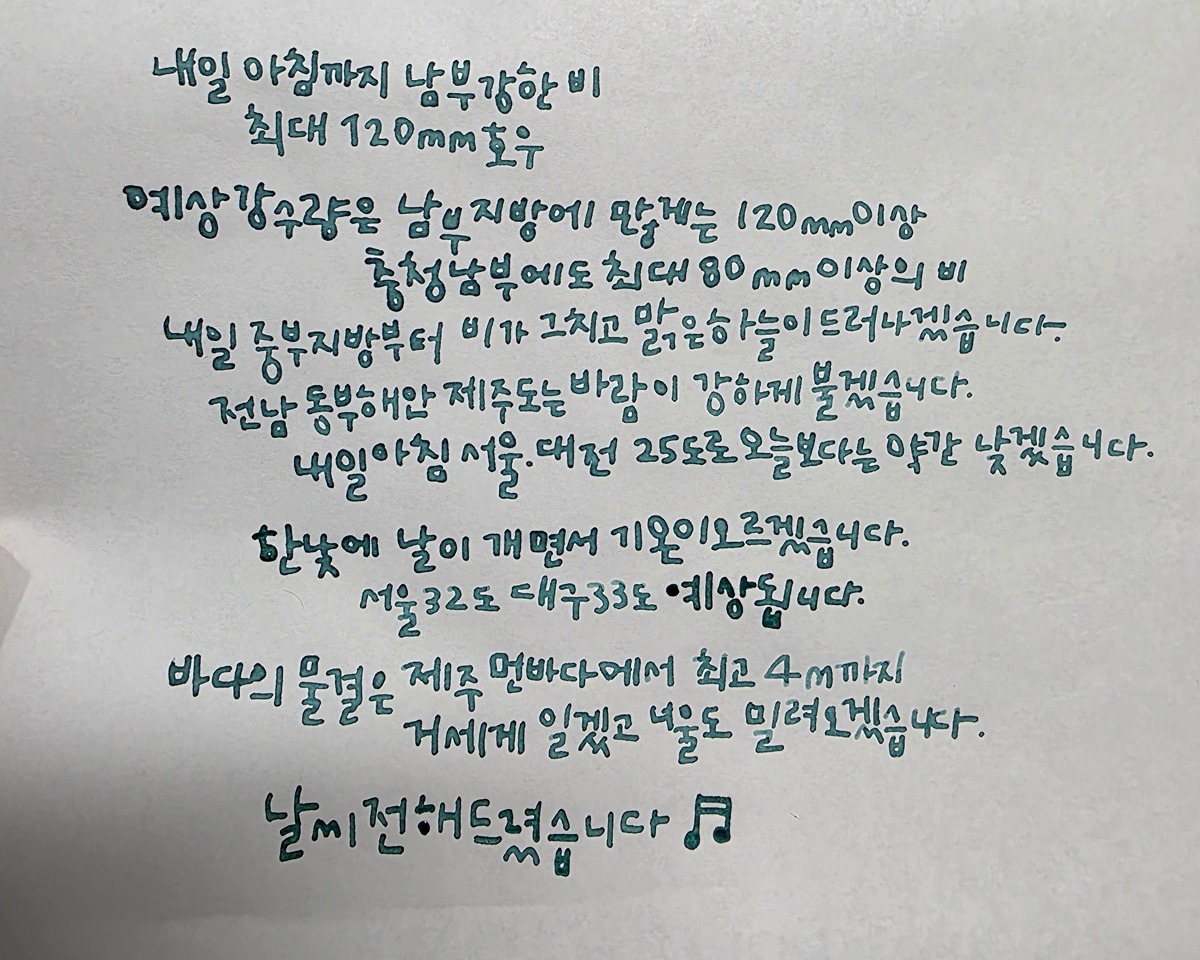 내일 아침까지 남부강한 비
최대 120mm 호우
예상강수량은 남부지방에 많게는 120mm이상
충청남부에도 최대 80mm이상의 비
내일 중부지방부터 비가 그치고 맑은하늘이드러나겠습니다.
전남 동부해안 제주도는 바람이 강하게 불겠습니다.
내일아침 서울.대전 25도로오늘보다는 약간 낮겠습니다.
한낮에 날이 개면서 기온이오르겠습니다.
서울32도 대구33도 예상됩니다.
바다의 물결은 제주 먼바다에서 최고 4m까지
거세게 일겠고 너울도 밀려오겠습니다.
날씨전해드렸습니다 ♬